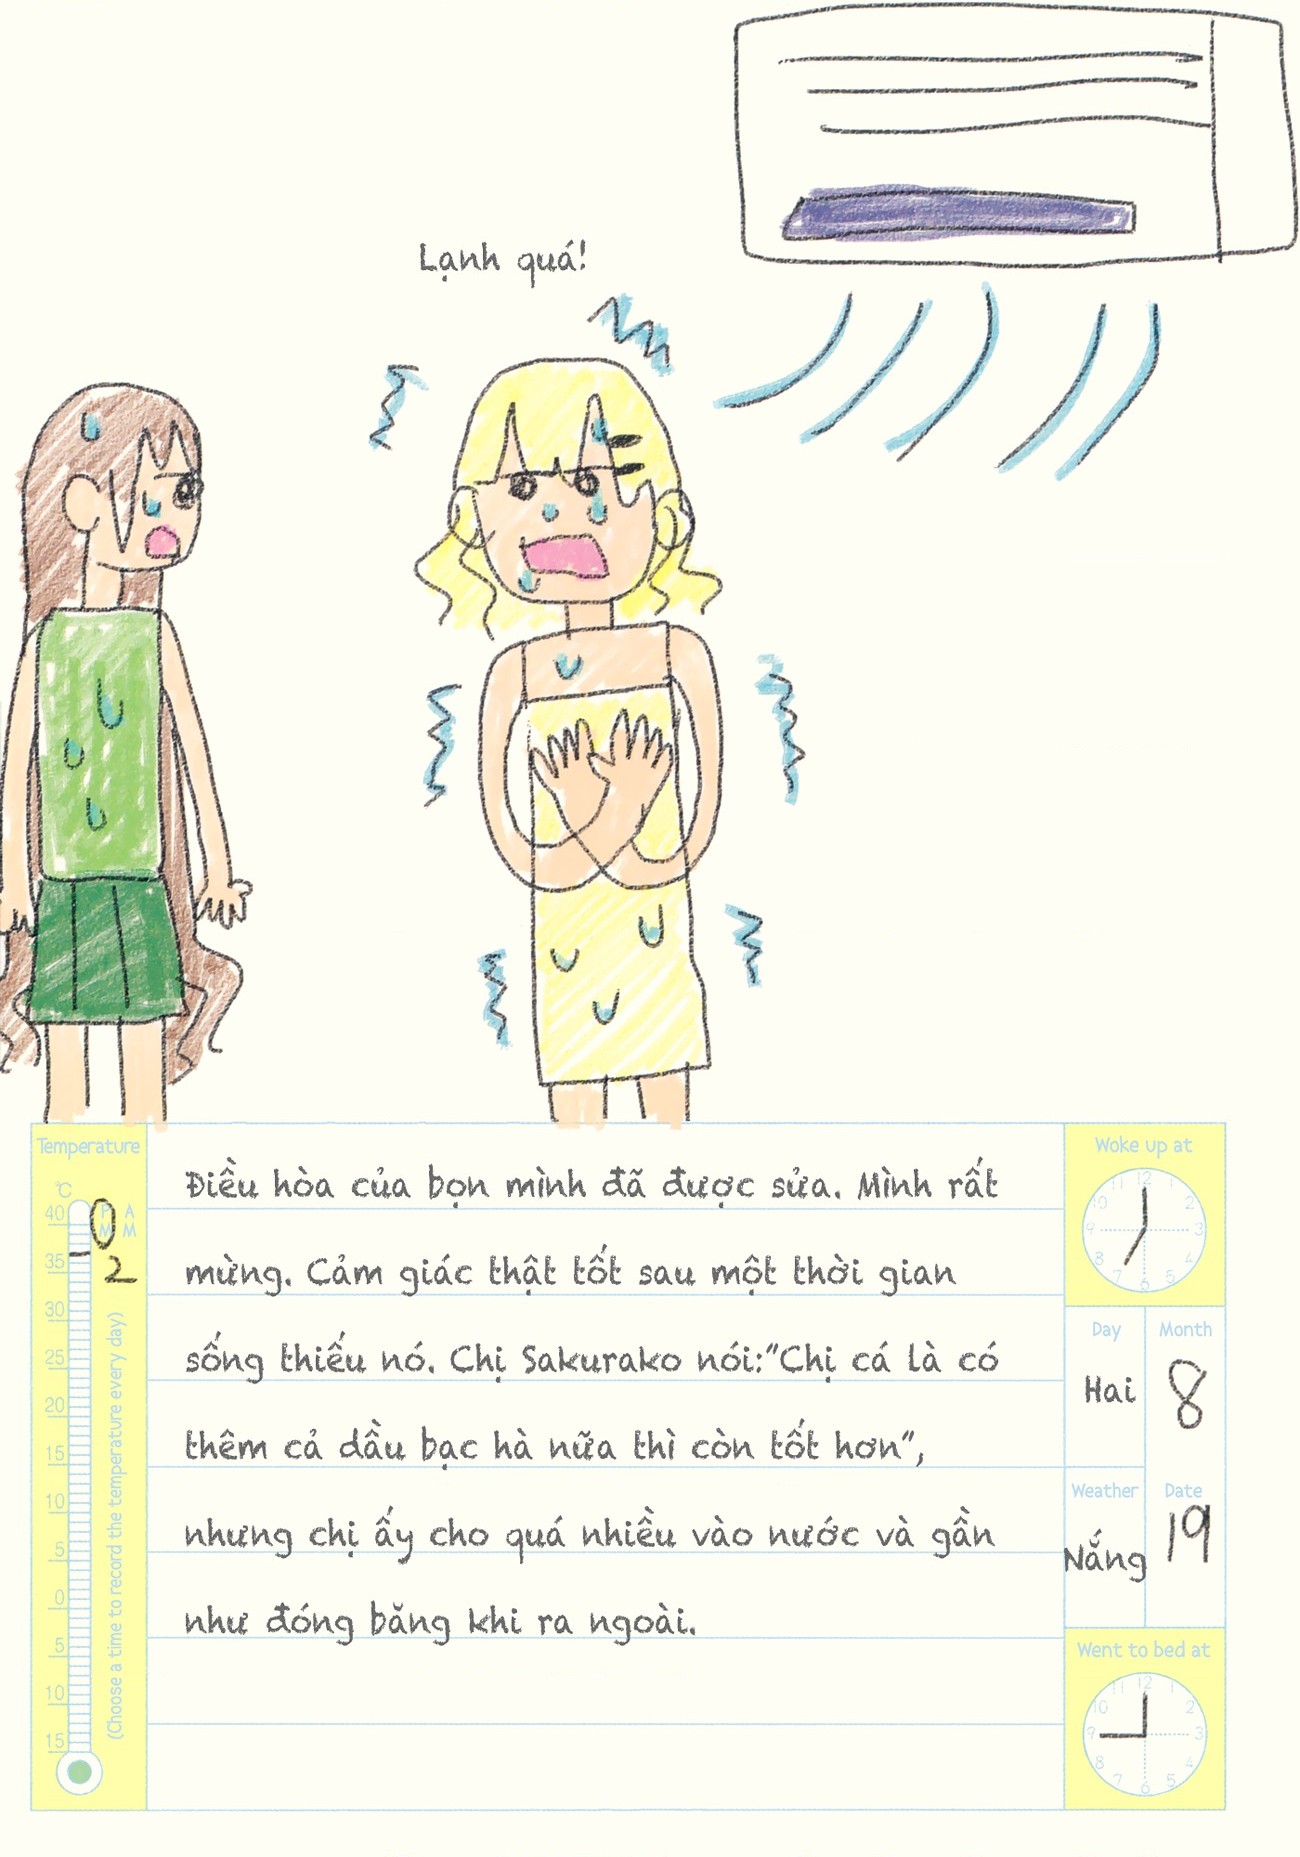 Lạnh quá!
Temperature
°C
40
35
30
25
20
15
10
5
0
5
10
15
P A
M M
2
(Choose a time to record the temperature every day)
Điều hòa của bọn mình đã được sửa. Mình rất
mừng. Cảm giác thật tốt sau một thời gian
sống thiếu nó. Chị Sakurako nói:"Chị cá là có
thêm cả dầu bạc hà nữa thì còn tốt hơn",
nhưng chị ấy cho quá nhiều vào nước và gần
như đóng băng khi ra ngoài.
Woke up at
12
11
10
9
8
7
6
5
4
3
2
1
Day
Month
Hai
8
Weather
Date
Nắng
19
Went to bed at
12
11
10
9
8
7
6
5
4
3
2
1